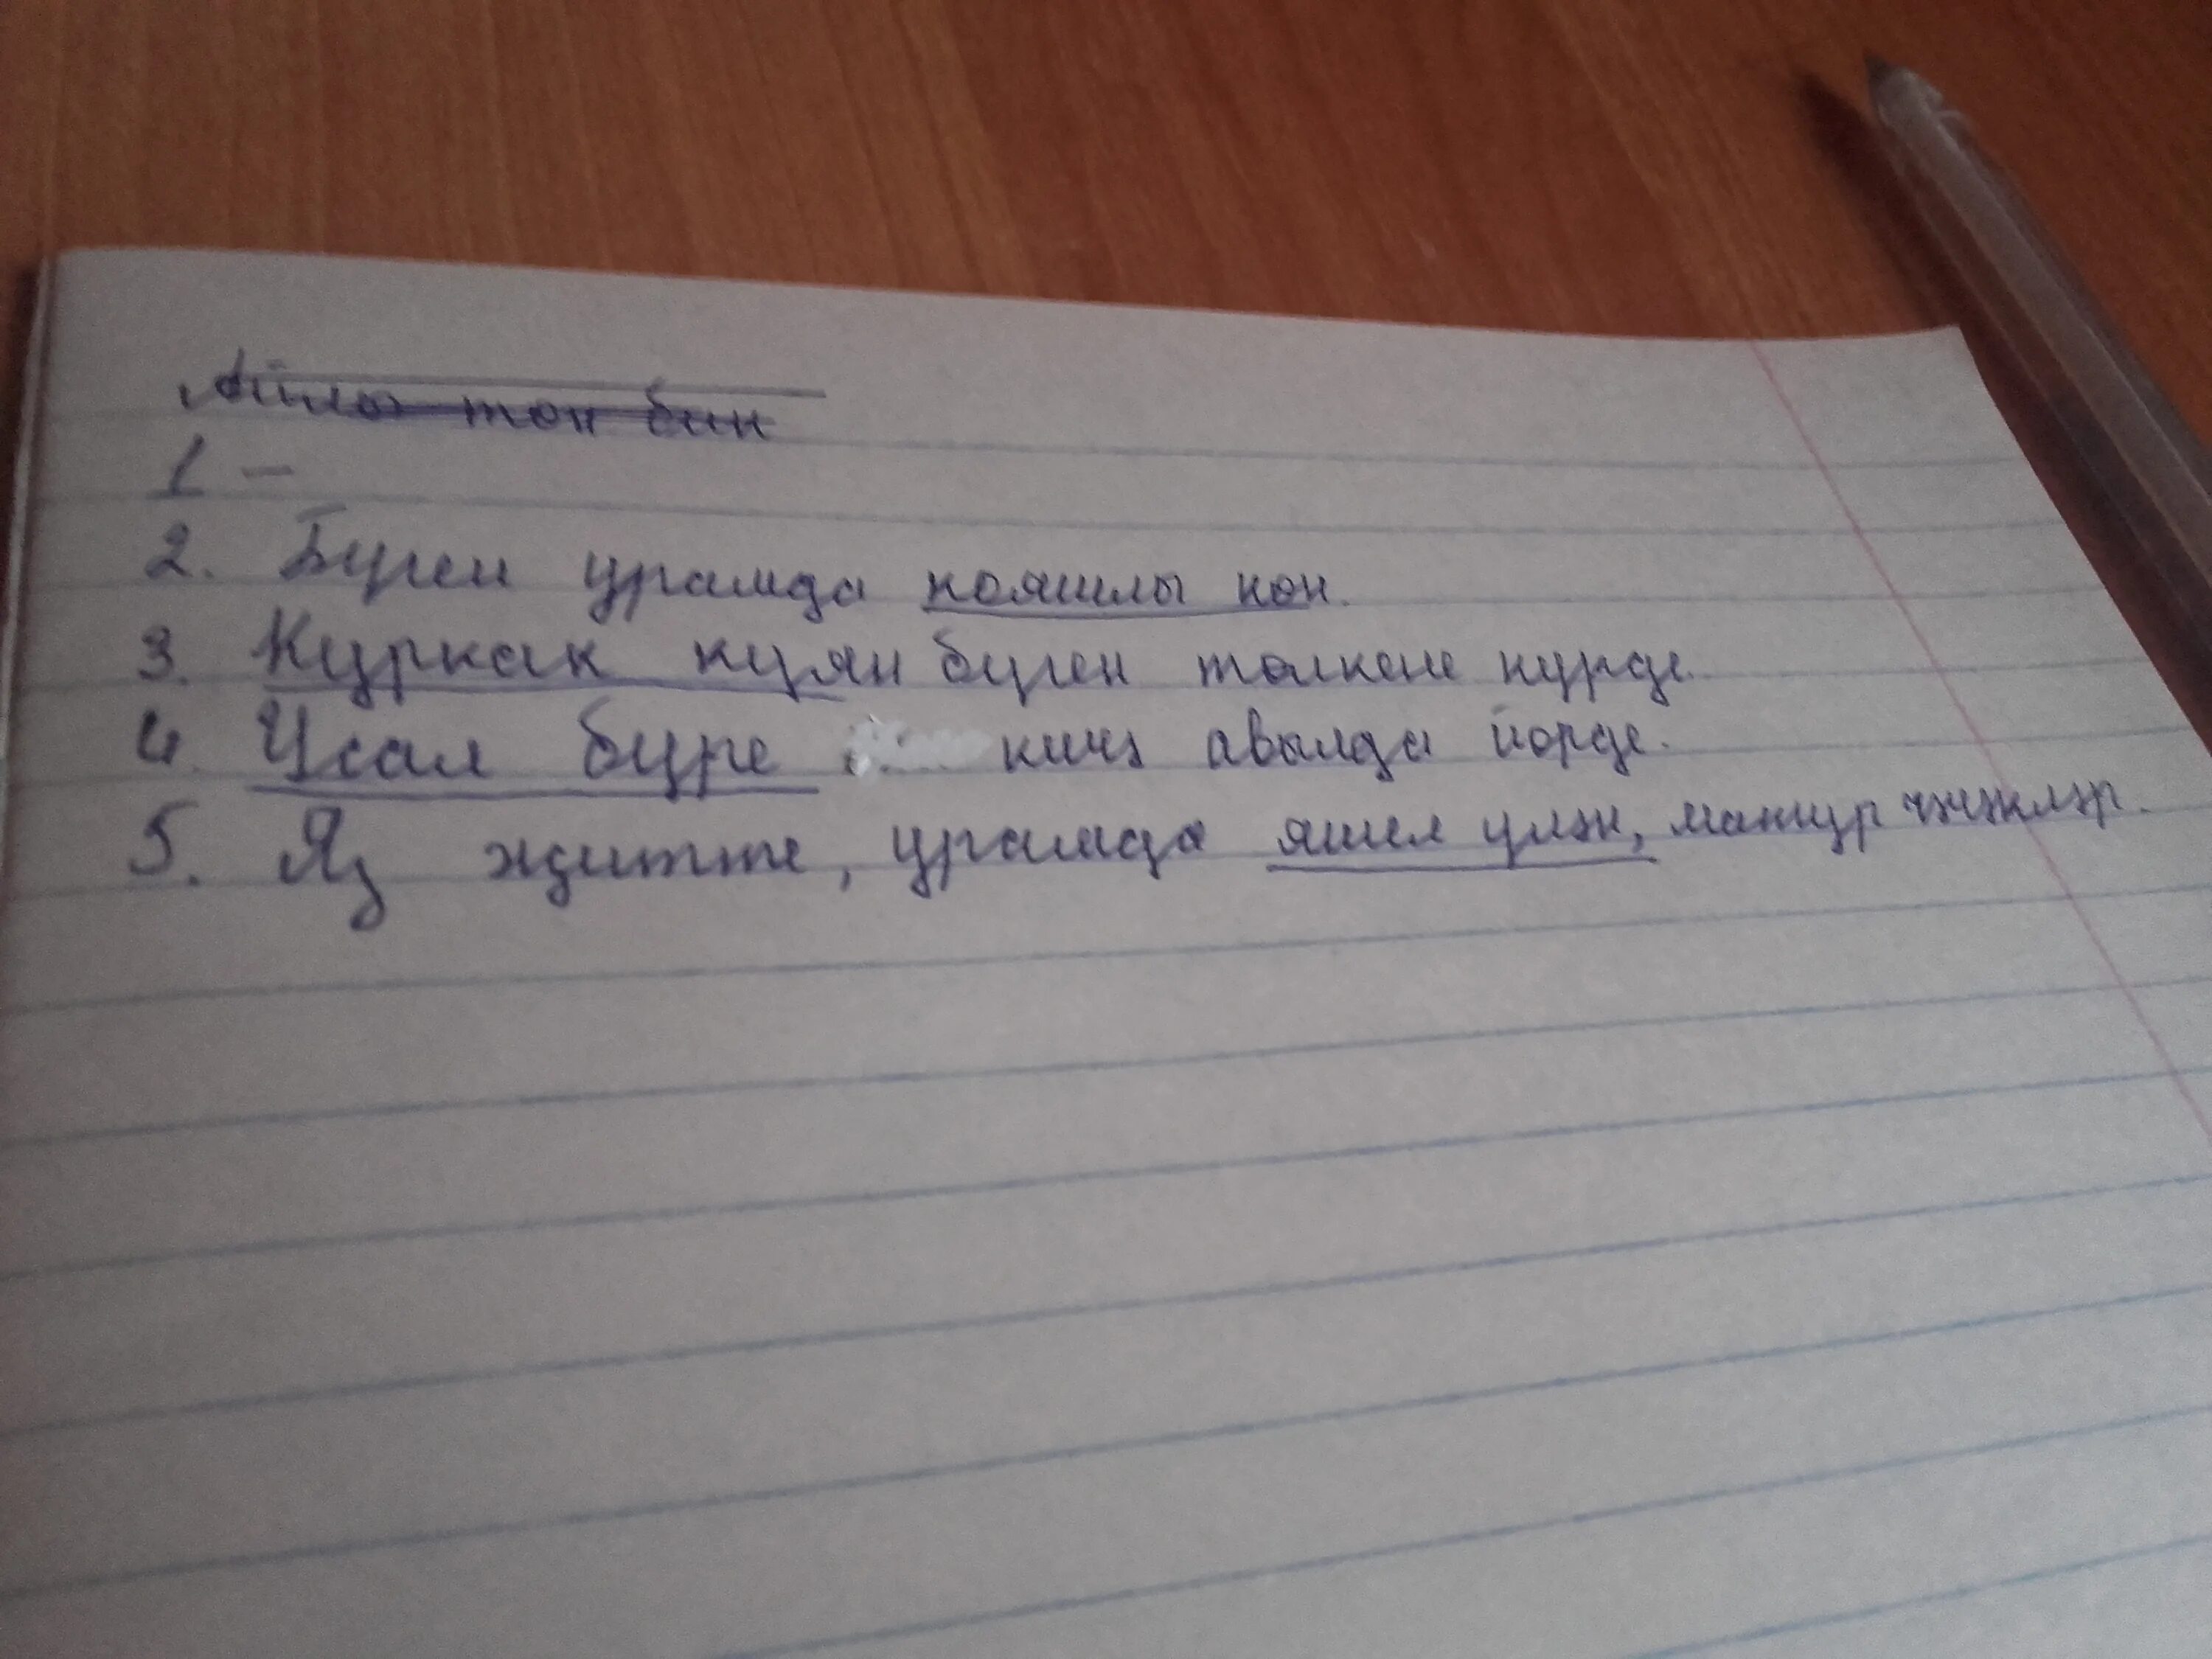 1 —
2. Бүген урамда кояшлы көн.
3. Куркак куян бүген төлкене күрде.
4. Усал бүре кичә авылда йөрде.
5. Яз җитте, урамда яшел үлән, матур чәчәкләр.